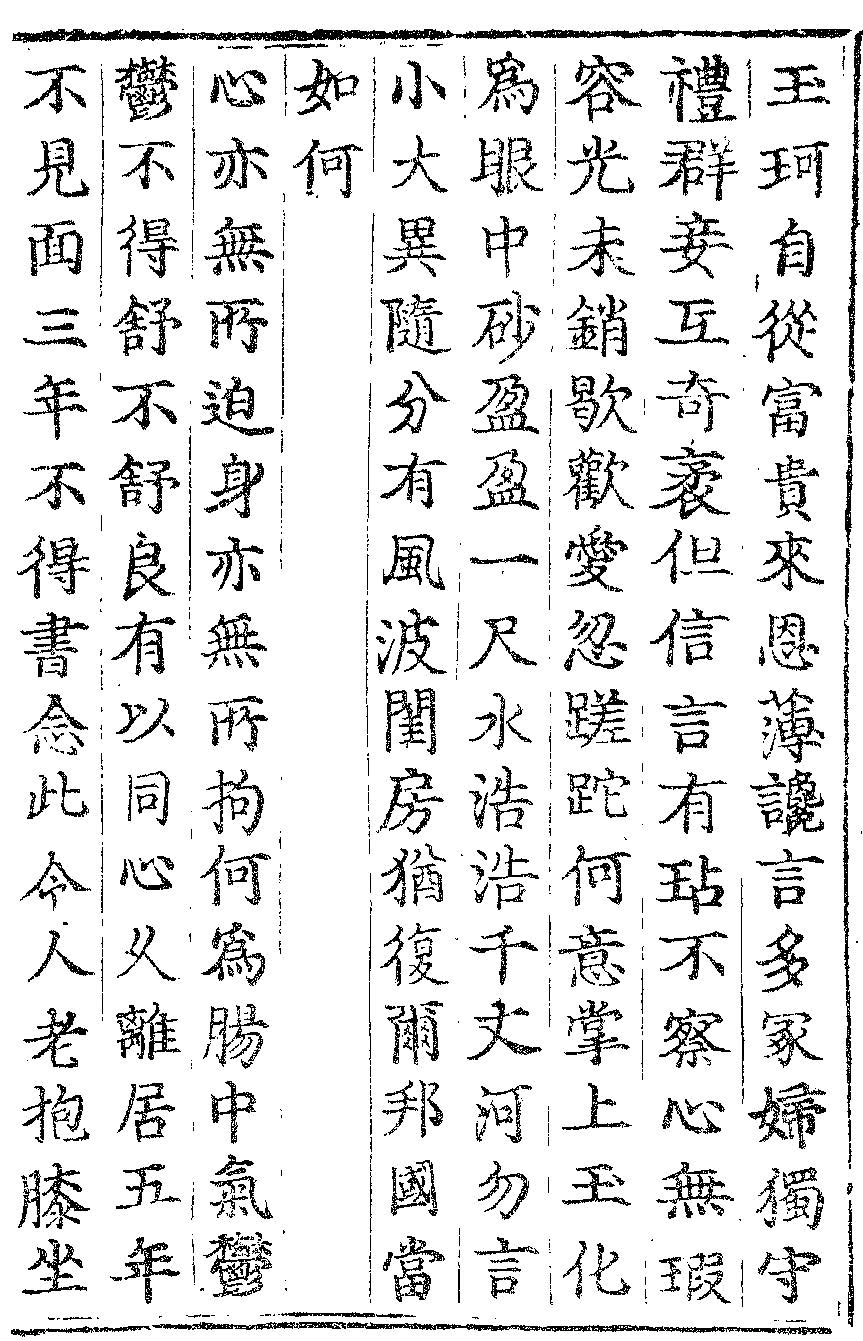 玉珂自從富貴來恩薄讒言多冢婦獨守
禮群妾互奇袤但信言有玷不察心無瑕
容光未銷歇歡愛忽蹉跎何意掌上玉化
爲眼中砂盈盈一尺水浩浩千丈河勿言
小大異隨分有風波閨房猶復爾邦國當
如何
心亦無所迫身亦無所拘何爲腸中氣鬱
鬱不得舒不舒良有以同心久離居五年
不見面三年不得書念此令人老抱膝坐